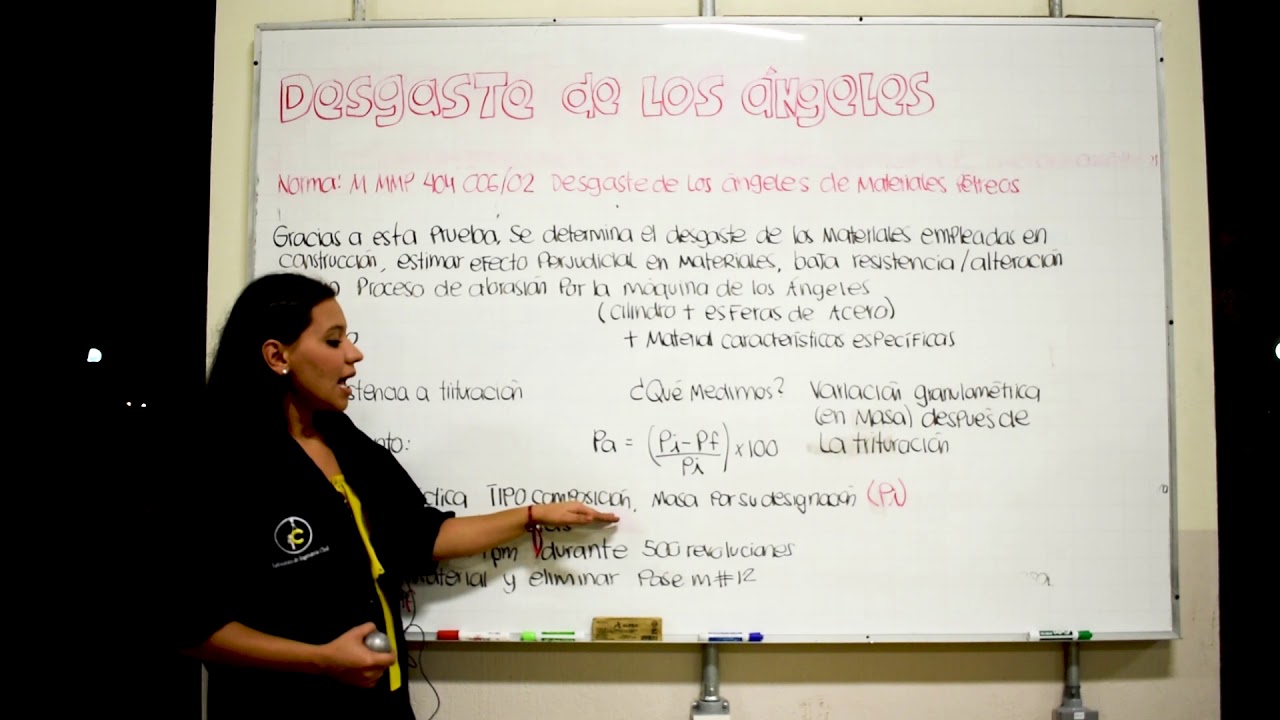 Desgaste de Los Ángeles
Norma: M MMP 404 006/02 Desgaste de Los ángeles de Materiales Pétreos
Gracias a esta Prueba, se determina el desgaste de los Materiales empleadas en
construcción, estimar efecto Perjudicial en Materiales, baja resistencia/alteración
Proceso de abrasión Por la máquina de los Ángeles
(cilindro + esferas de Acero)
+ Material características específicas
stencia a trituración
¿Qué Medimos? Variación granulométrica
(en Masa) después de
La trituración
nto:
Pa = (Pi-Pf/Pi) x 100
dica TIPO composición, Masa Por su designación (Pi)
rpm durante 500 revoluciones
material y eliminar Pase m#12
C